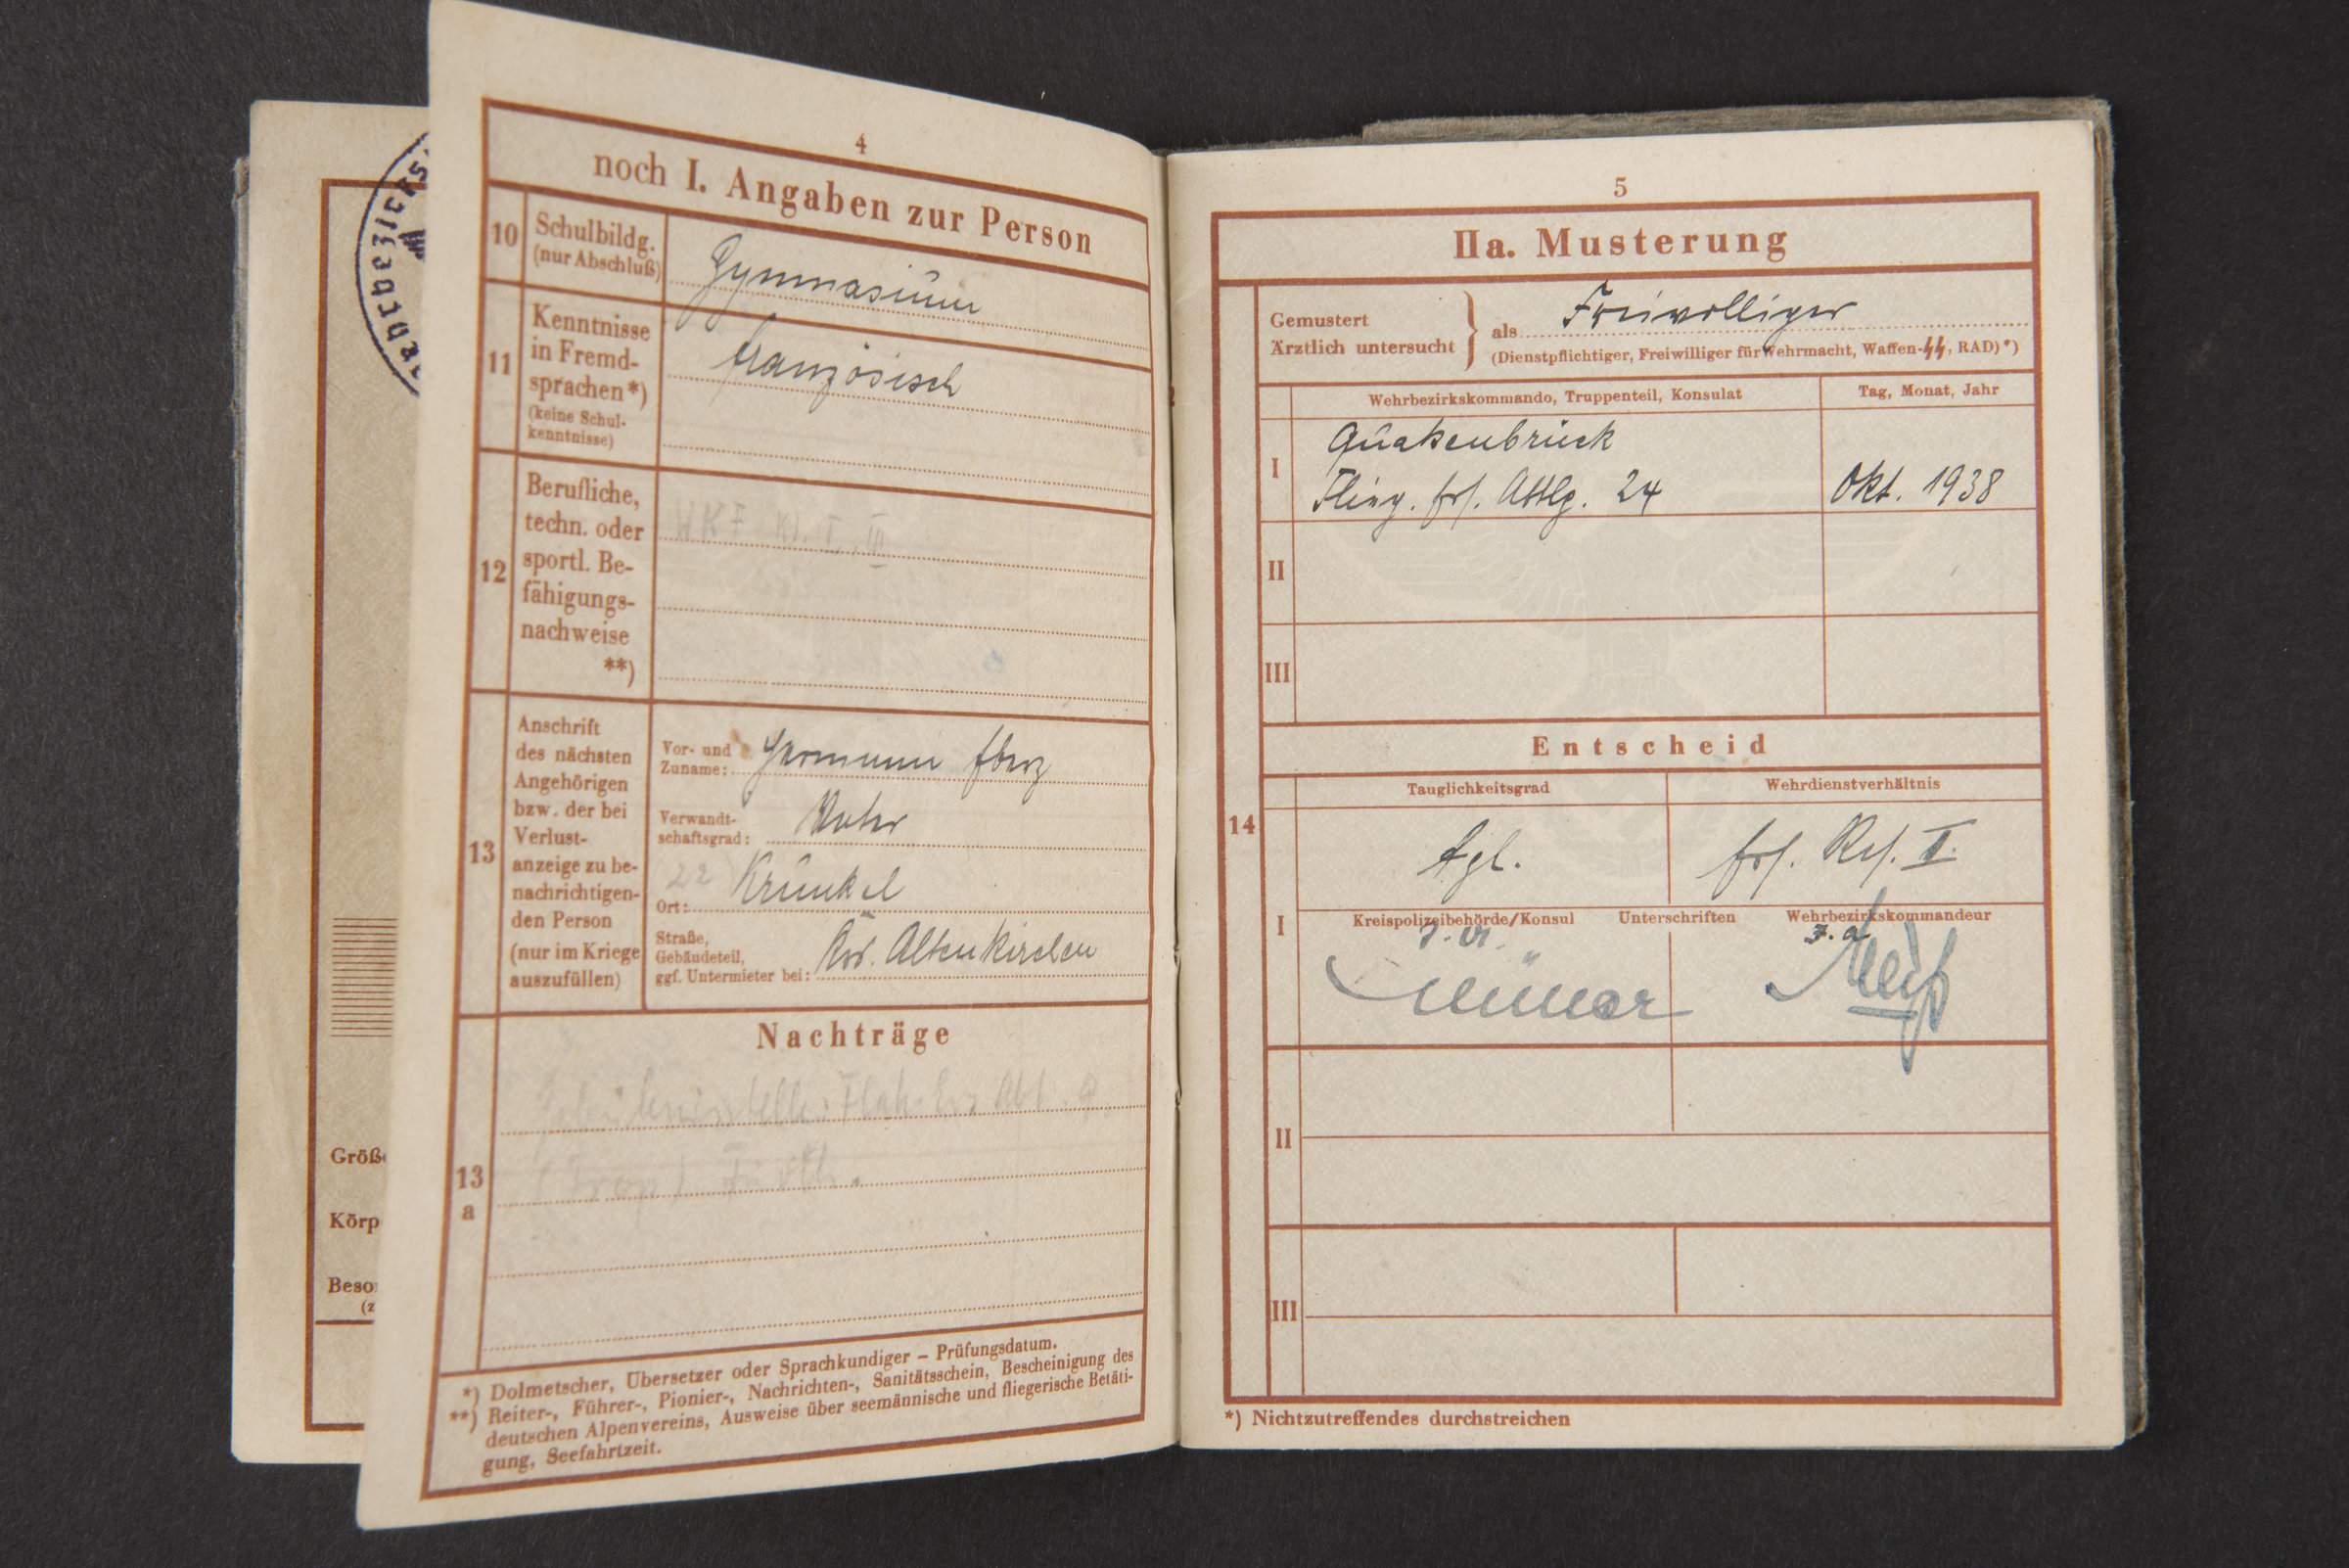 Größ
Körp
Beso
(z
4
noch I. Angaben zur Person
10
Schulbildg.
(nur Abschluß)
Gymnasium
11
Kenntnisse
in Fremd-
sprachen*)
(keine Schul-
kenntnisse)
französisch
12
Berufliche,
techn. oder
sportl. Be-
fähigungs-
nachweise
**)
WKF Kl. I, III
13
Anschrift
des nächsten
Angehörigen
bzw. der bei
Verlust-
anzeige zu be-
nachrichtigen-
den Person
(nur im Kriege
auszufüllen)
Vor- und
Zuname:
Hermann
Verwandt-
schaftsgrad:
Vater
Ort:
22 Krunkel
Straße,
Gebäudeteil,
ggf. Untermieter bei:
Altenkirchen
Nachträge
13
a
Flak. Ers. Abt. 9
(Trop) Fürth.
*) Dolmetscher, Übersetzer oder Sprachkundiger – Prüfungsdatum.
**) Reiter-, Führer-, Pionier-, Nachrichten-, Sanitätsschein, Bescheinigung des
deutschen Alpenvereins, Ausweise über seemännische und fliegerische Betäti-
gung, Seefahrtzeit.
5
IIa. Musterung
Gemustert
Ärztlich untersucht
als
Freiwilliger
(Dienstpflichtiger, Freiwilliger für Wehrmacht, Waffen-SS, RAD)*)
Wehrbezirkskommando, Truppenteil, Konsulat
Tag, Monat, Jahr
14
I
Quakenbrück
Flieg. Ers. Abtlg. 24
Okt. 1938
II
III
Entscheid
Tauglichkeitsgrad
Wehrdienstverhältnis
tgl.
Ers. Res. I.
I
Kreispolizeibehörde/Konsul Unterschriften Wehrbezirkskommandeur
II
III
*) Nichtzutreffendes durchstreichen